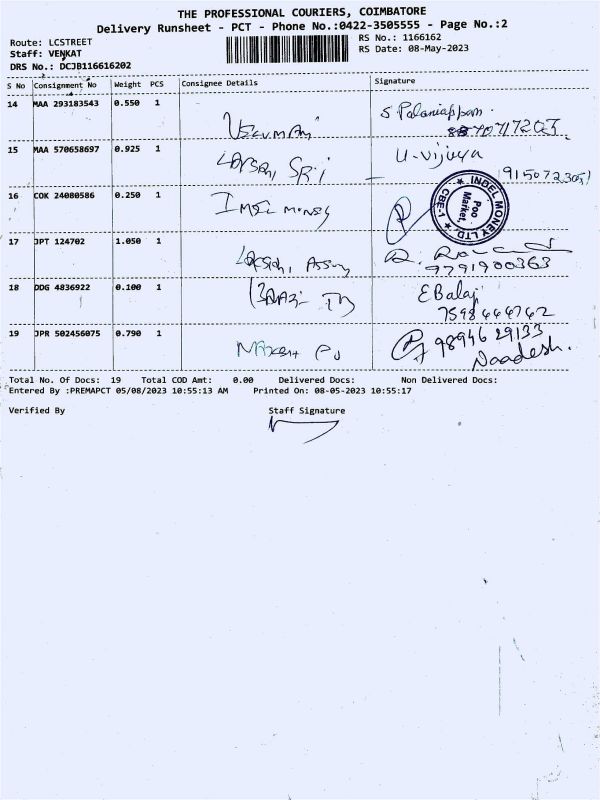 THE PROFESSIONAL COURIERS, COIMBATORE
Delivery Runsheet - PCT - Phone No.:0422-3505555 - Page No.:2
Route: LCSTREET
Staff: VENKAT
DRS No.: DCJB116616202
RS No.: 1166162
RS Date: 08-May-2023
S No Consignment No Weight PCS Consignee Details Signature
14 MAA 293183543 0.550 1
S. Palaniappan.
15 MAA 570658697 0.925 1 SRI U. vijaya
16 COK 24080586 0.250 1 MONEY
INDEL MONEY LTD. CBE-1 Poo Market,
17 JPT 124702 1.050 1
9791900363
18 DDG 4836922 0.100 1 E Balaji
7598444742
19 JPR 502456075 0.790 1 98946 29133
Naadesh.
Total No. Of Docs: 19 Total COD Amt: 0.00 Delivered Docs: Non Delivered Docs:
Entered By :PREMAPCT 05/08/2023 10:55:13 AM Printed On: 08-05-2023 10:55:17
Verified By Staff Signature